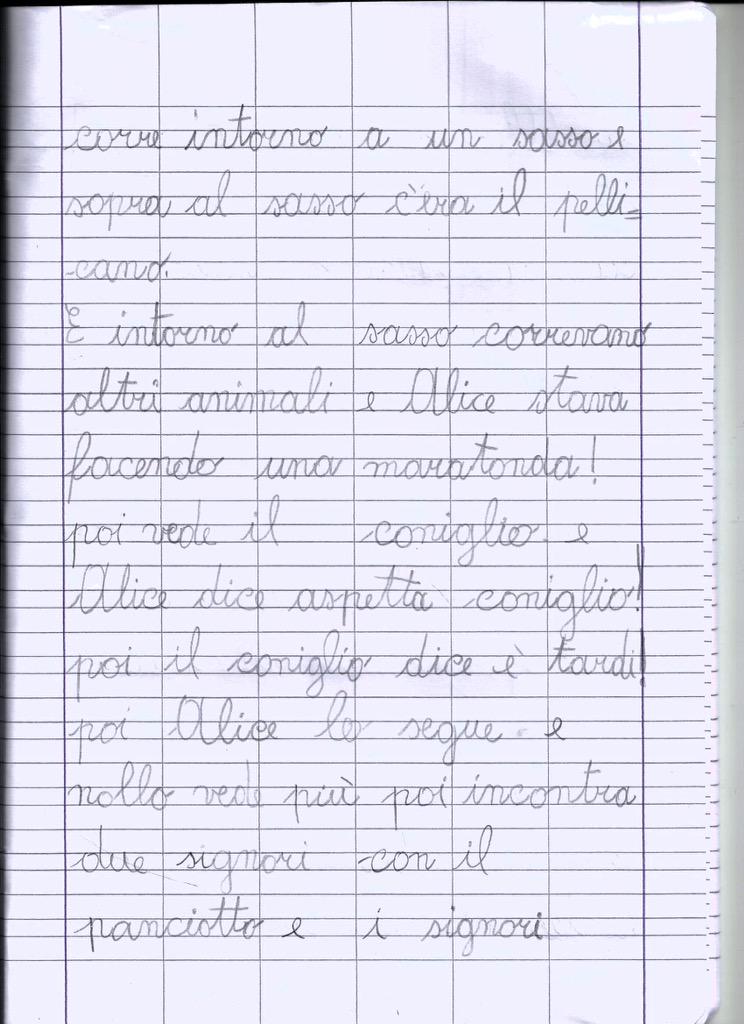 corre intorno a un sasso e
sopra al sasso c'era il pelli=
cano.
E intorno al sasso correvano
altri animali e Alice stava
facendo una maratonda!
poi vede il coniglio e
Alice dice aspetta coniglio!
poi il coniglio dice è tardi!
poi Alice lo segue e
nollo vede più poi incontra
due signori con il
panciotto e i signori